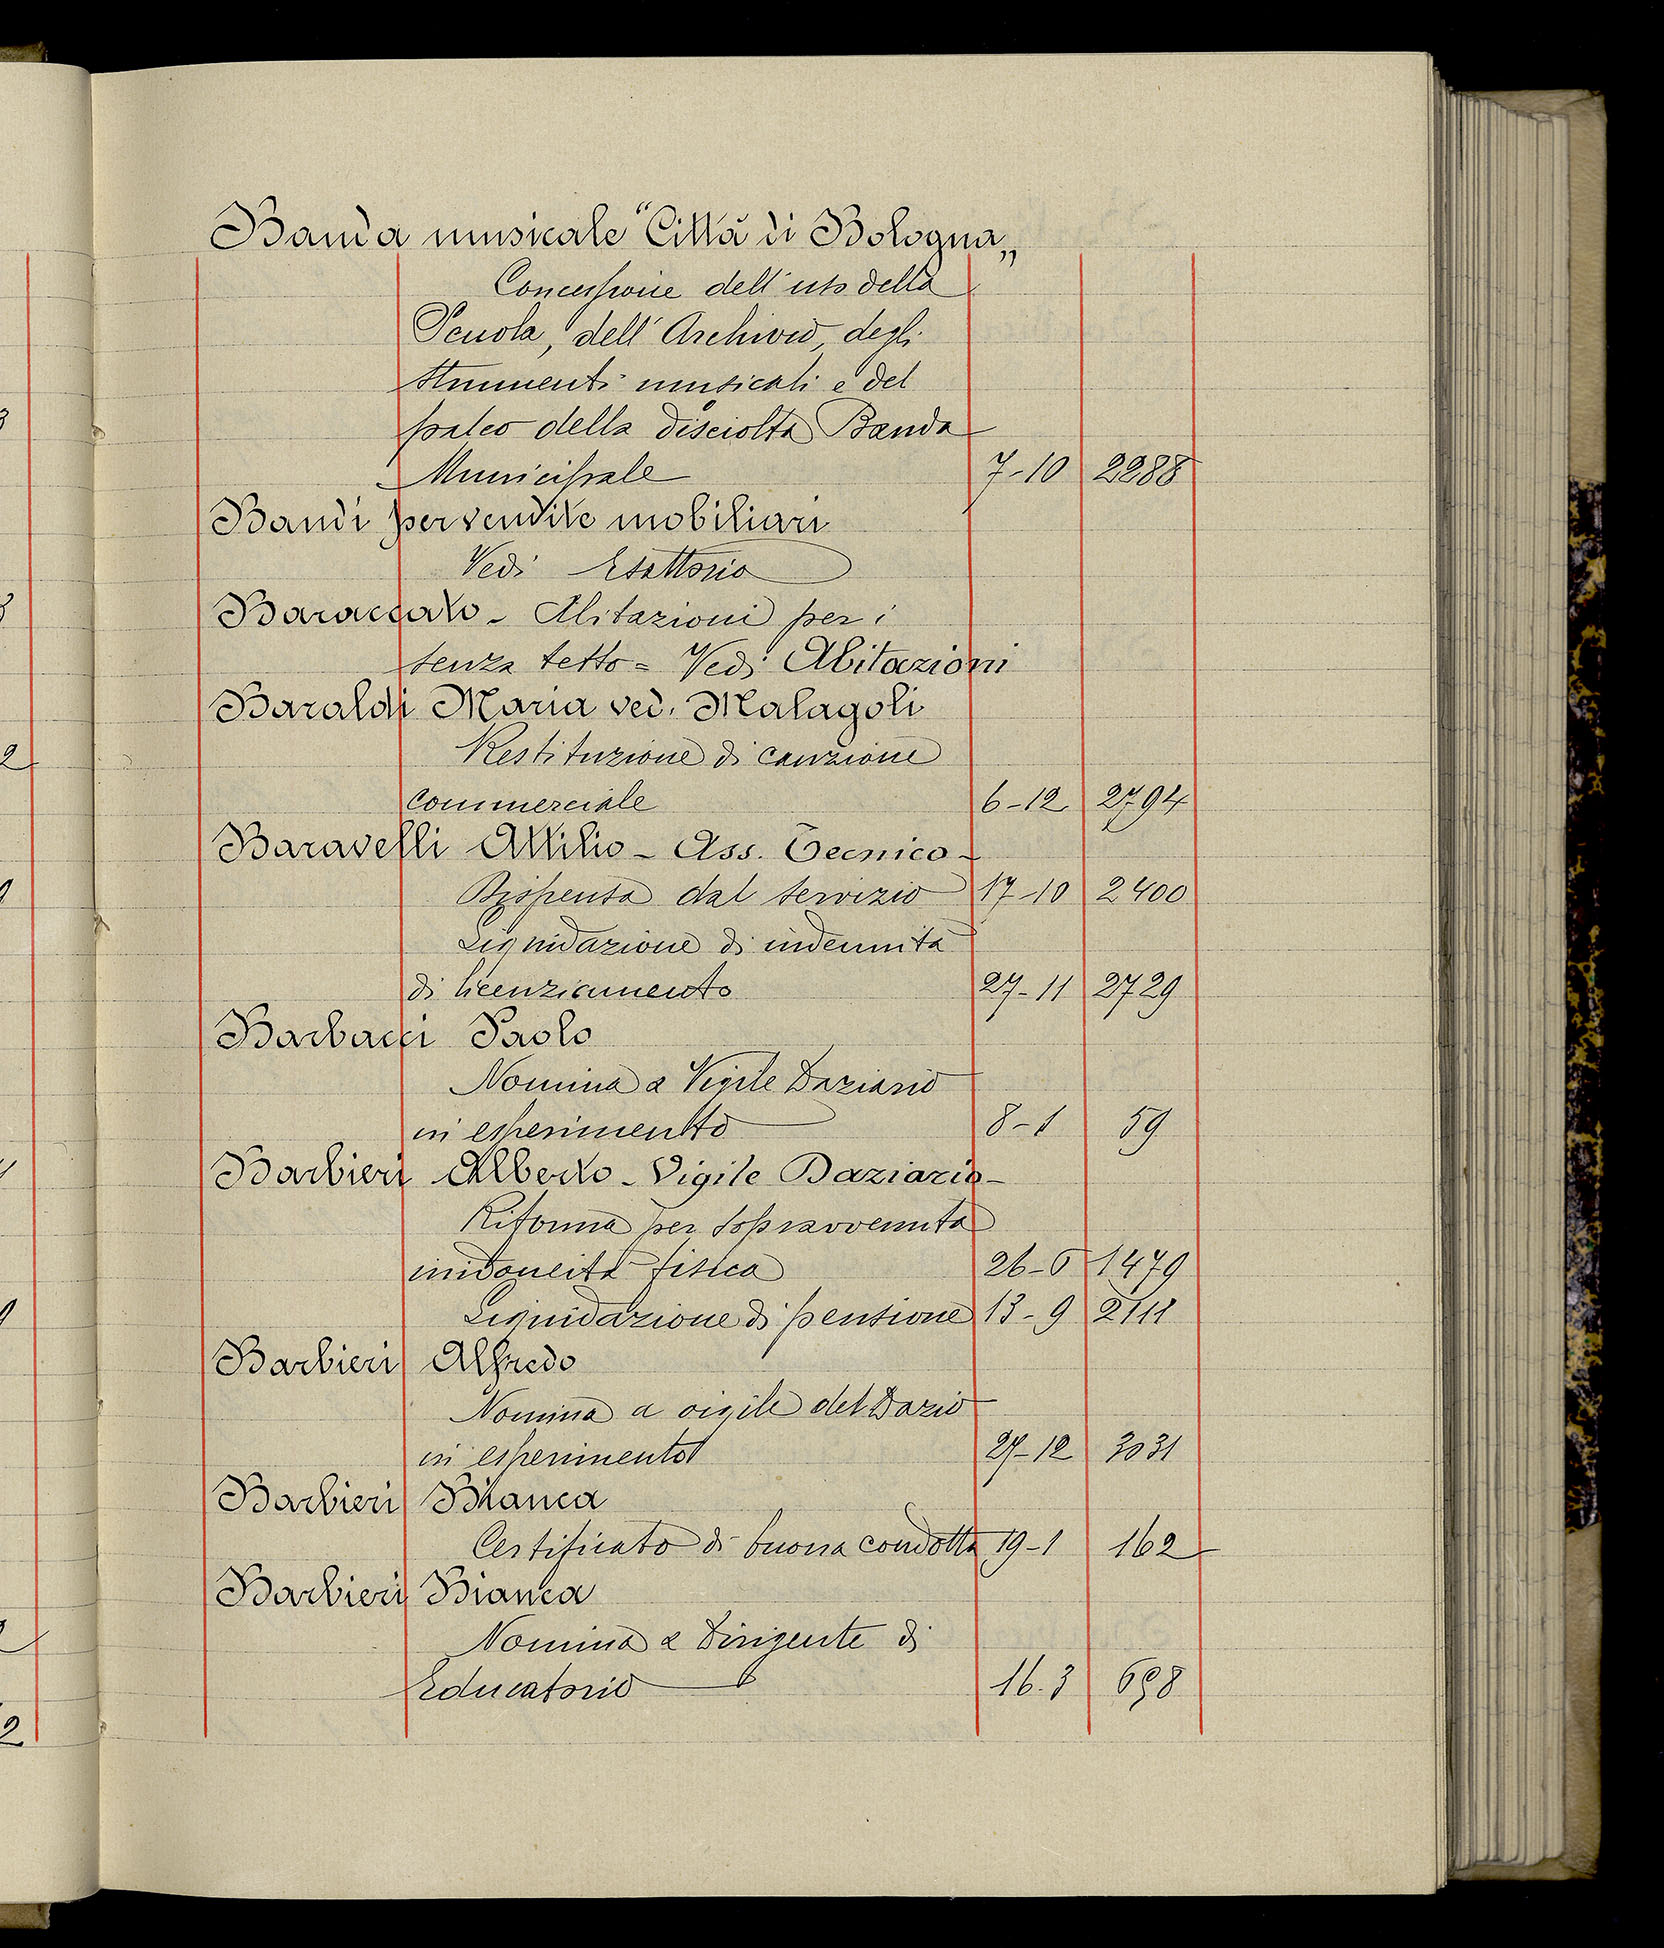 Banda musicale "Città di Bologna„
Concessione dell'uso della
Scuola, dell'Archivio, degli
strumenti musicali e del
palco della disciolta Banda
Municipale 7-10 2288
Bandi per vendite mobiliari
Vedi Esattoria
Baraccato - Abitazioni per i
senza tetto = Vedi Abitazioni
Baraldi Maria ved. Malagoli
Restituzione di cauzione
commerciale 6-12 2794
Baravelli Attilio - Ass. Tecnico -
Dispensa dal servizio 17-10 2400
Liquidazione di indennità
di licenziamento 27-11 2729
Barbacci Paolo
Nomina a Vigile Daziario
in esperimento 8-1 59
Barbieri Alberto - Vigile Daziario -
Riforma per sopravvenuta
inidoneità fisica 26-6 1479
Liquidazione di pensione 13-9 2111
Barbieri Alfredo
Nomina a vigile del Dazio
in esperimento 27-12 3031
Barbieri Bianca
Certificato di buona condotta 19-1 162
Barbieri Bianca
Nomina a Dirigente di
Educatorio 16.3 698